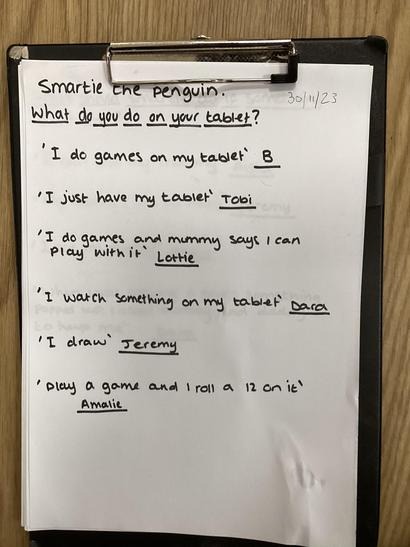 Smartie the penguin.
30/11/23
What do you do on your tablet?
'I do games on my tablet' B
'I just have my tablet' Tobi
'I do games and mummy says I can
play with it' Lottie
'I watch something on my tablet' Dara
'I draw' Jeremy
'play a game and I roll a 12 on it'
Amalie